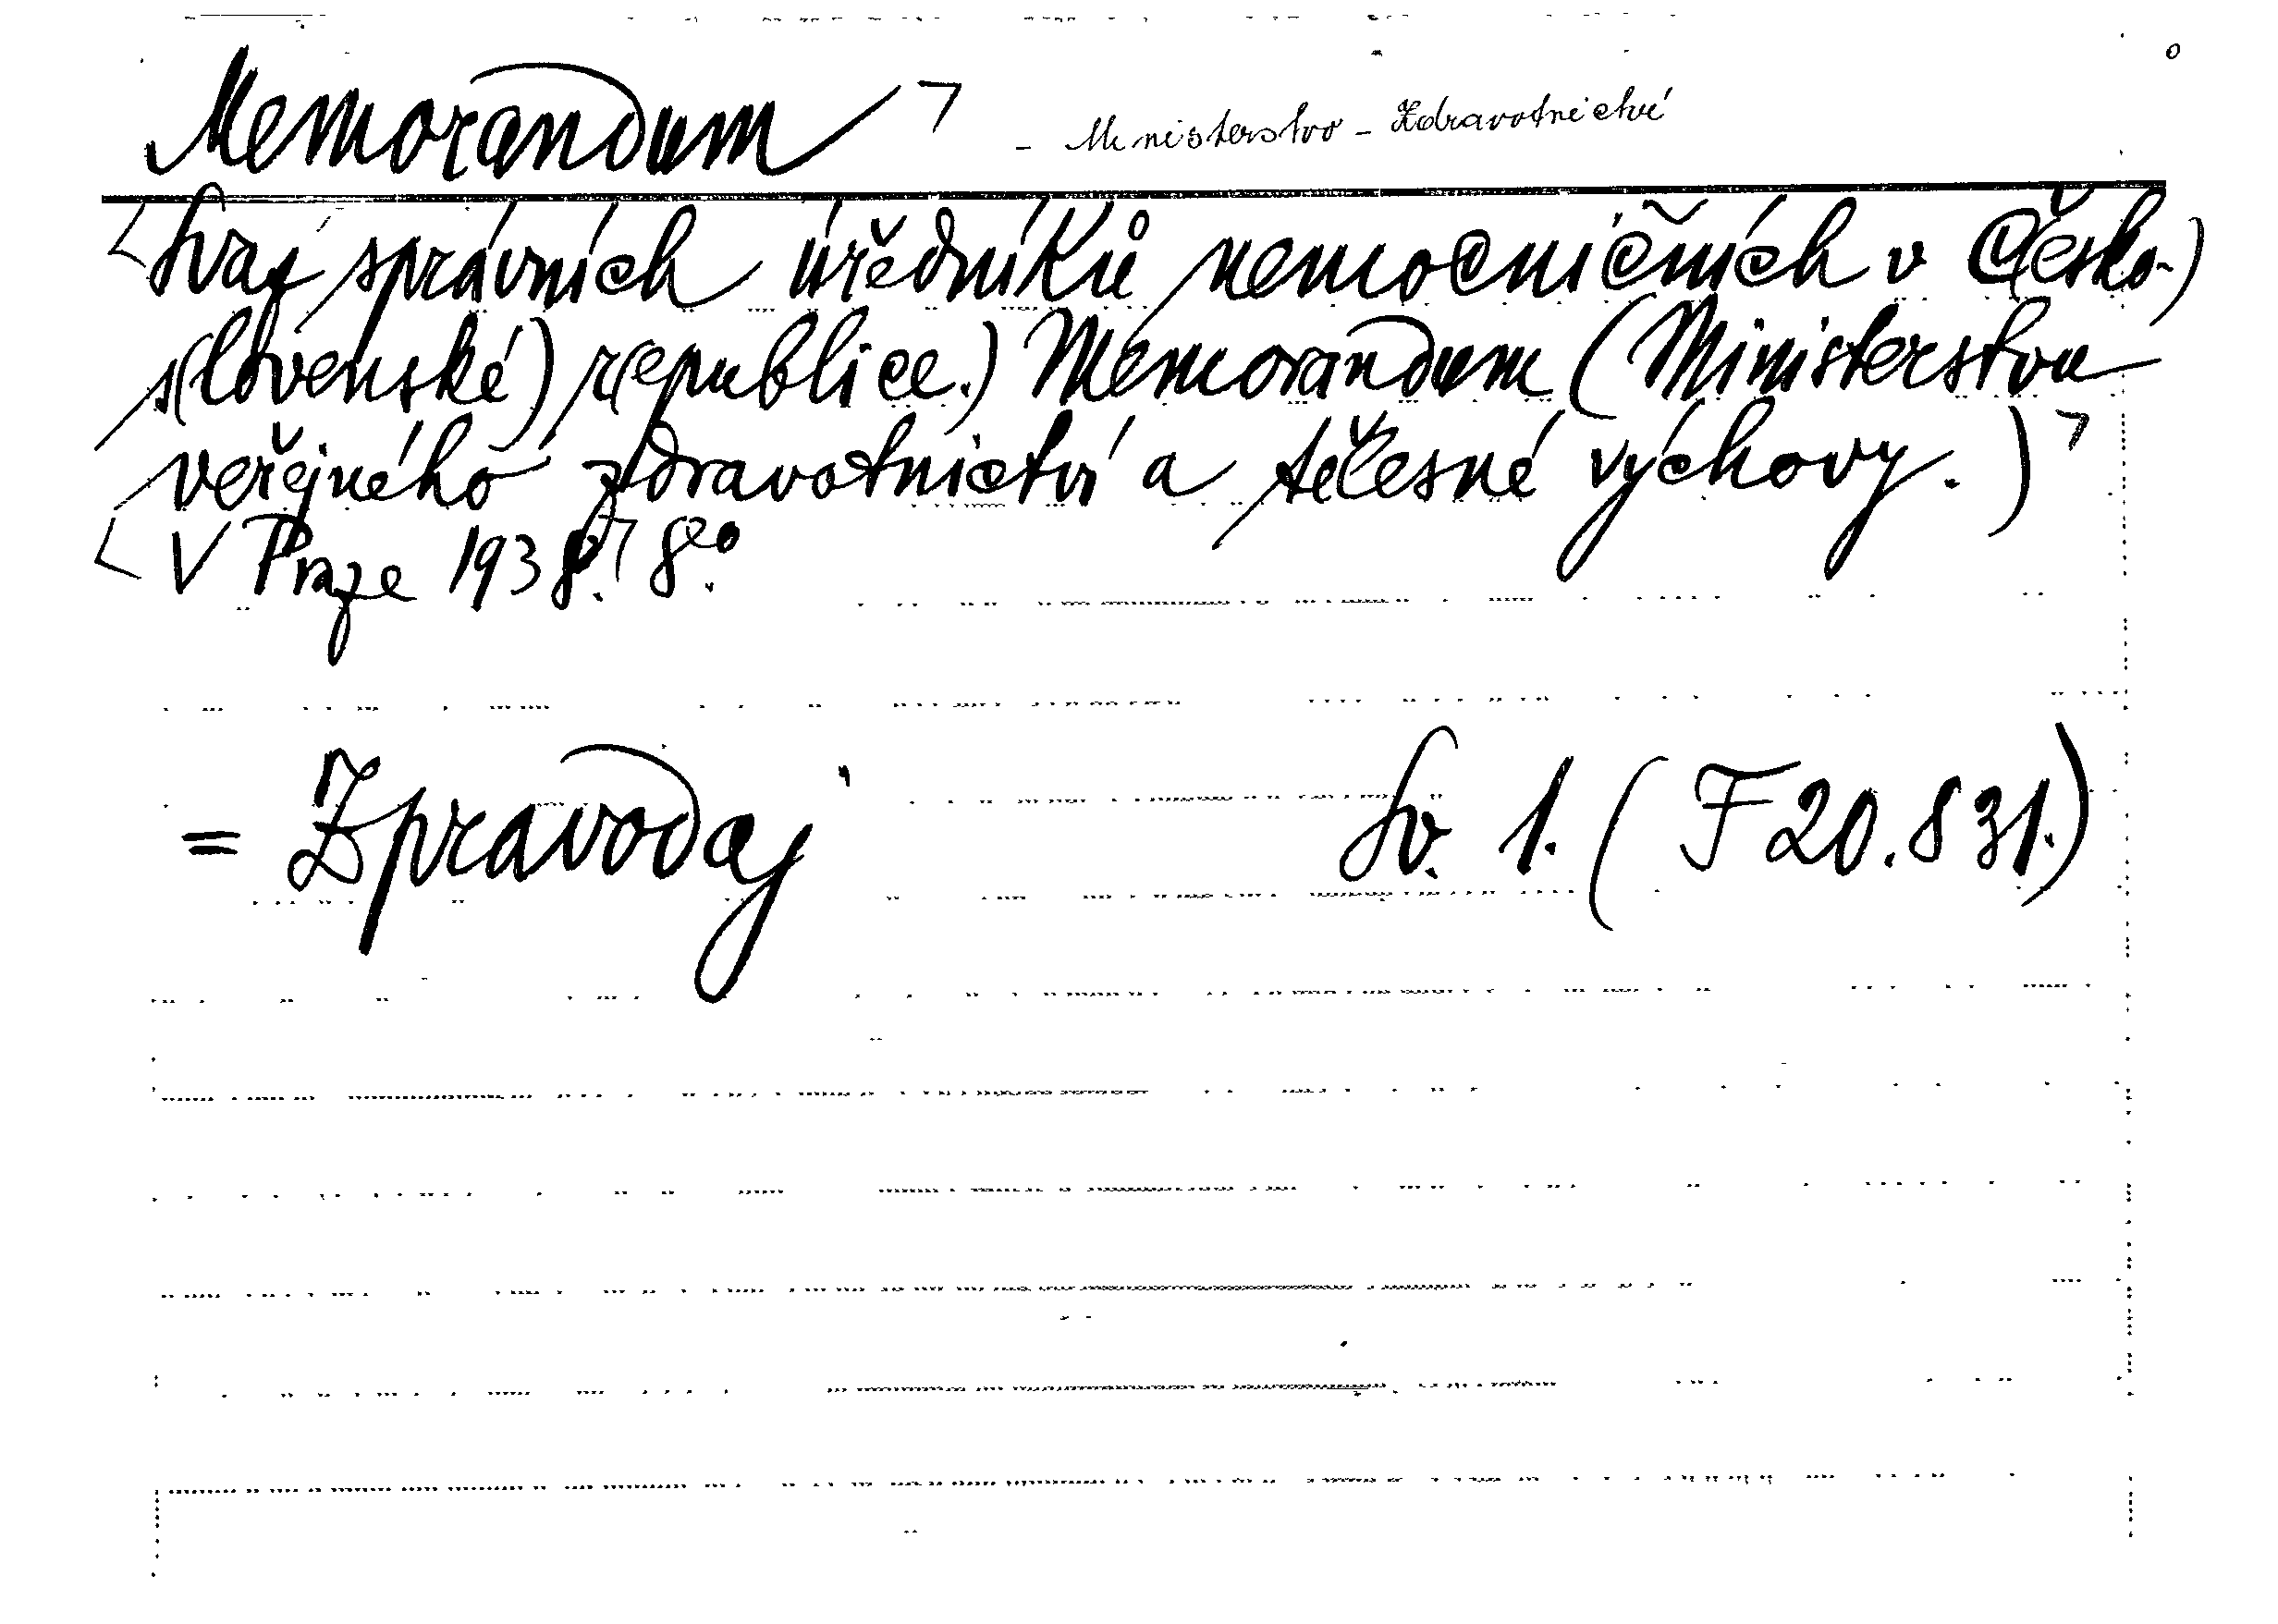 Memorandum ⌝ - Ministerstvo - Zdravotnictví
<Svaz správních úředníků nemocničních v Č(esko-)
s(lovenské) r(epublice.) Memorandum (Ministerstvu
veřejného zdravotnictví a tělesné výchovy.)⌝
<V Praze 1938.⌝ 8°.
= Zpravodaj Sv. 1. (F 20.831.)